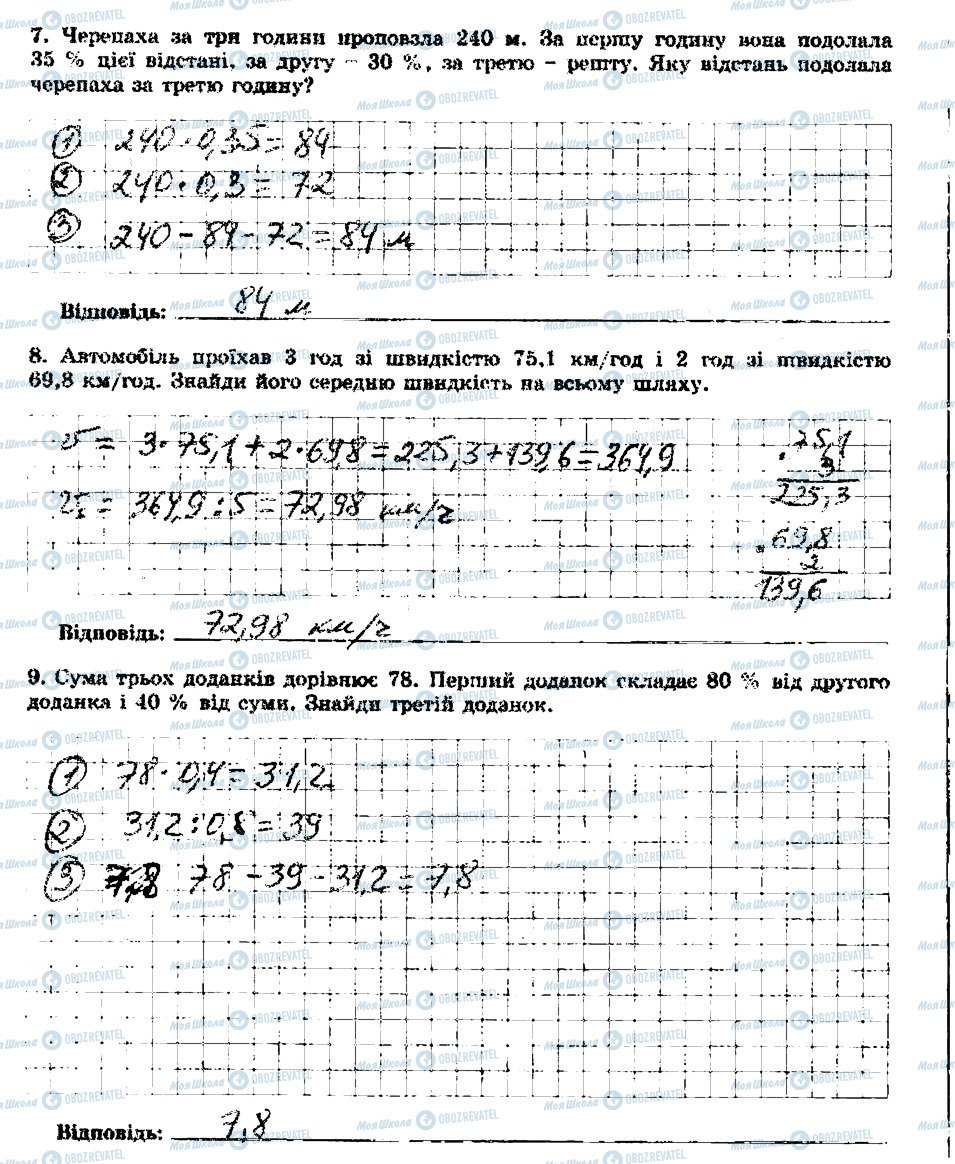 7. Черепаха за три години проповзла 240 м. За першу годину вона подолала
35 % цієї відстані, за другу – 30 %, за третю – решту. Яку відстань подолала
черепаха за третю годину?
① 240 · 0,35 = 84
② 240 · 0,3 = 72
③ 240 - 84 - 72 = 84 м
Відповідь: 84 м
8. Автомобіль проїхав 3 год зі швидкістю 75,1 км/год і 2 год зі швидкістю
69,8 км/год. Знайди його середню швидкість на всьому шляху.
= 3 · 75,1 + 2 · 69,8 = 225,3 + 139,6 = 364,9
= 364,9 : 5 = 72,98 км/ч
75,1
3
225,3
69,8
2
139,6
Відповідь: 72,98 км/ч
9. Сума трьох доданків дорівнює 78. Перший доданок складає 80 % від другого
доданка і 40 % від суми. Знайди третій доданок.
① 78 · 0,4 = 31,2
② 31,2 : 0,8 = 39
③ 78 - 39 - 31,2 = 7,8
Відповідь: 7,8
МояШкола OBOZREVATEL